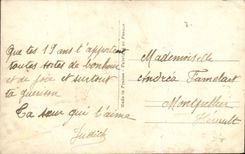 Que tes 19 ans t'apportent
toutes sortes de bonheur
et de joie et surtout
la guérison
Ta sœur qui t'aime
Judith
Mademoiselle
Andréa Tamalet
Montpellier
Hérault